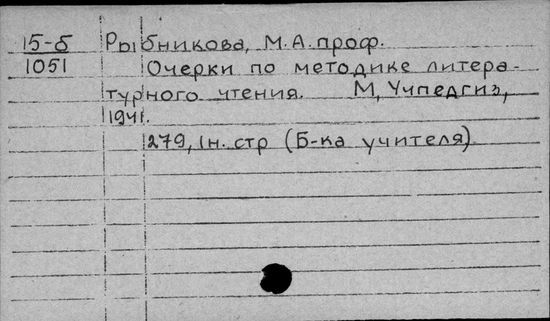 15-б
1051
Рыбникова, М.А. проф.
Очерки по методике литера-
турного чтения. М, Учпедгиз,
1941.
279, 1н. стр (Б-ка учителя).